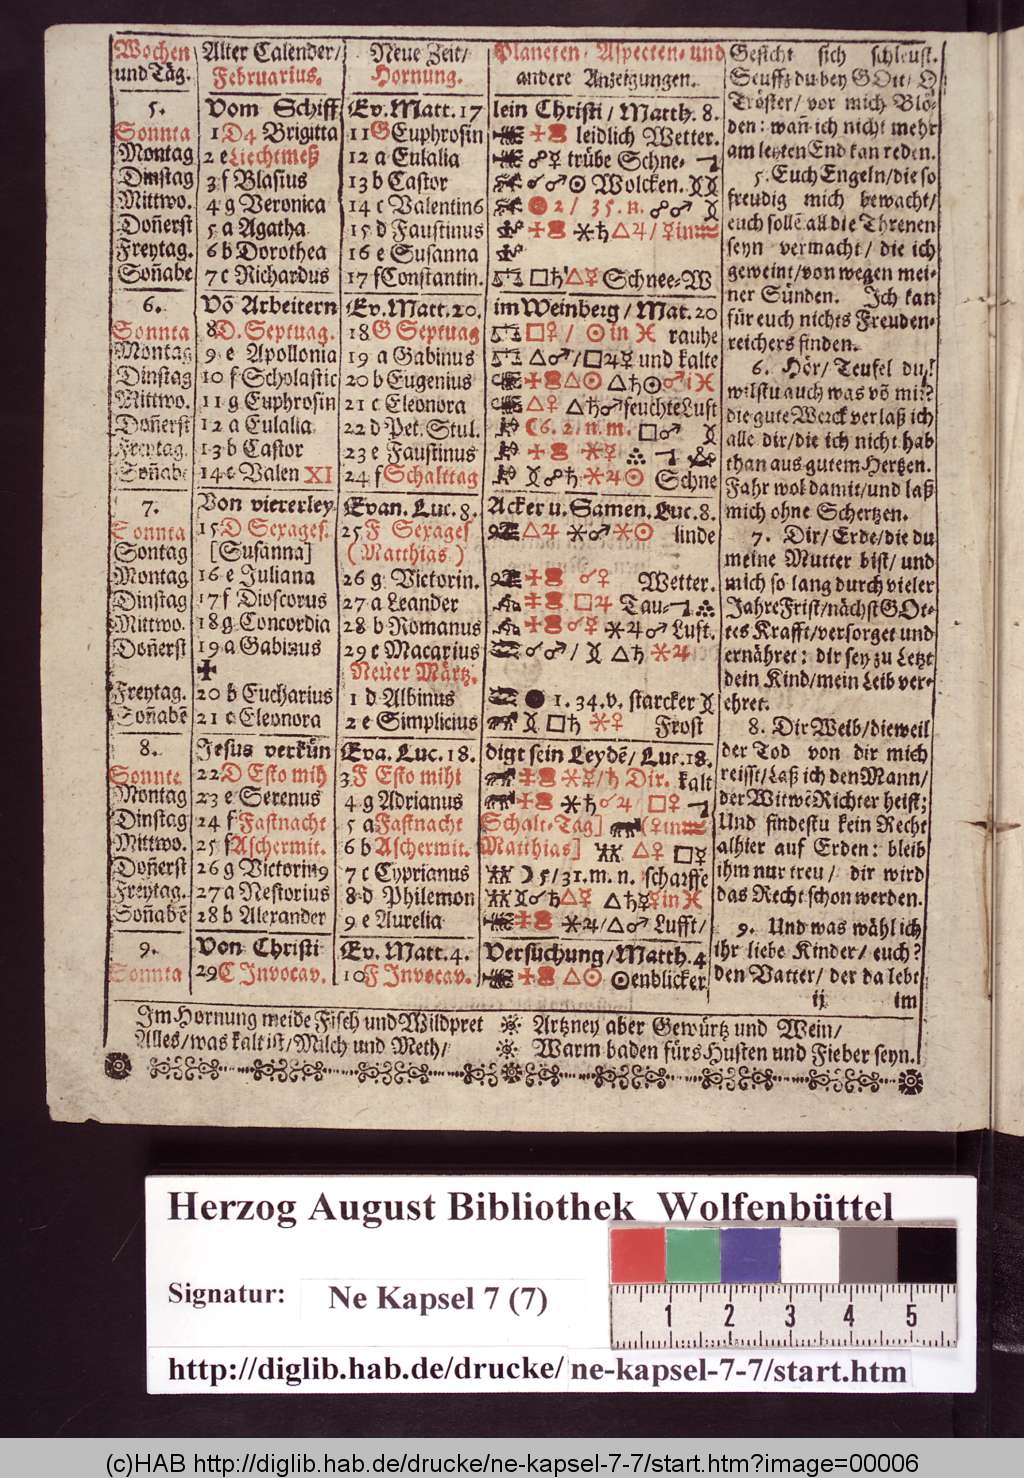 Wochen und Täg. | Alter Calender/ Februarius. | Neue Zeit/ Hornung. | Planeten- Aspecten- und andere Anzeigungen.
5. | Vom Schiff | Ev. Matt. 17 | lein Christi / Matth. 8.
Sonnta | 1 D4 Brigitta | 11 G Euphrosin | leidlich Wetter.
Montag | 2 e Liechtmeß | 12 a Eulalia | ☍☿ trübe Schne-
Dinstag | 3 f Blasius | 13 b Castor | ☌♂☉ Wolcken.
Mittwo. | 4 g Veronica | 14 c Valentin6 | 2 / 35. n. ☍♂
Doñerst | 5 a Agatha | 15 d Faustinus | ⚹♄ △♃/☿in♒
Freytag. | 6 b Dorothea | 16 e Susanna
Soñabe | 7 c Richardus | 17 f Constantin. | □♄△☿ Schnee-W
6. | Võ Arbeitern | Ev. Matt. 20. | im Weinberg / Mat. 20
Sonnta | 8 D. Septuag. | 18 G Septuag | □♀/ ☉in♓ rauhe
Montag | 9 e Apollonia | 19 a Gabinus | △♂/□♃☿ und kalte
Dinstag | 10 f Scholastic | 20 b Eugenius | △☉ △♄☉♂i♓
Mittwo. | 11 g Euphrosin | 21 c Eleonora | △♀ △♄♂feuchte Luft
Doñerst | 12 a Eulalia | 22 d Pet. Stul. | ☾6. 2. n. m. □♂
Freytag. | 13 b Castor | 23 e Faustinus | ⚹☿
Soñabe | 14 c Valen XI | 24 f Schalttag | ☍♄ ⚹♃☉ Schne
7. | Von viererley | Evan. Luc. 8. | Acker u. Samen. Luc. 8.
Sonnta | 15 D Sexages. | 25 F Sexages | △♃ ⚹♂⚹☉ linde
(Sontag | [Susanna] | (Matthias)
Montag | 16 e Juliana | 26 g Victorin. | ☌♀ Wetter.
Dinstag | 17 f Dioscorus | 27 a Leander | □♃ Tau-
Mittwo. | 18 g Concordia | 28 b Romanus | ☌☿ ⚹♃♂ Luft.
Doñerst | 19 a Gabinus | 29 c Macarius | ☌♂/ △♄ ⚹♃
✠ | Neuer Märtz.
Freytag. | 20 b Eucharius | 1 d Albinus | 1. 34. v. starcker
Soñabẽ | 21 c Eleonora | 2 e Simplicius | □♄ ⚹♀ Frost
8. | Jesus verkün | Eva. Luc. 18. | digt sein Leydẽ/ Luc. 18.
Sonnte | 22 D Esto mih | 3 F Esto mihi | ⚹☿/♄ Dir. kalt
Montag | 23 e Serenus | 4 g Adrianus | ⚹♄☌♃ □♀
Dinstag | 24 f Fastnacht | 5 a Fastnacht | Schalt-Tag] (♀in♒
Mittwo. | 25 f Aschermit. | 6 b Aschermit. | Matthias] △♀ □☿
Doñerst | 26 g Victorin9 | 7 c Cyprianus | ☽ 5/31. m. n. scharffe
Freytag. | 27 a Nestorius | 8 d Philemon | ☌♄△♀ △♄☿☿in♓
Soñabẽ | 28 b Alexander | 9 e Aurelia | ⚹♃/△♂ Lufft/
9. | Von Christi | Ev. Matt. 4. | Versuchung/Matth. 4
Sonnta | 29 C Invocav. | 10 F Invocav. | △☉ ☉enblicker
Gesicht sich schleust.
Seuffz du bey GOtt/ O
Tröster/ vor mich Blö-
den: wañ ich nicht mehr
am letzten End kan reden.
5. Euch Engeln/die so
freudig mich bewacht/
euch sollẽ all die Threnen
seyn vermacht/ die ich
geweint/von wegen mei-
ner Sünden. Ich kan
für euch nichts Freuden-
reichers finden.
6. Hör/ Teufel du!
wilstu auch was võ mir?
die gute Werck verlaß ich
alle dir/die ich nicht hab
than aus gutem Hertzen.
Fahr wol damit/und laß
mich ohne Schertzen.
7. Dir/ Erde/die du
meine Mutter bist/ und
mich so lang durch vieler
Jahre Frist/nächst GOt-
tes Krafft/versorget und
ernähret: dir sey zu Letzt
dein Kind/mein Leib ver-
ehret.
8. Dir Welb/dieweil
der Tod von dir mich
reisst/Laß ich den Mann/
der Witwẽ Richter heist;
Und findestu kein Recht
alhier auf Erden: bleib
ihm nur treu/ dir wird
das Recht schon werden.
9. Und was wähl ich
ihr liebe Kinder/ euch?
den Vatter/ der da lebt
ij im
Im Hornung meide Fisch und Wildpret
Alles/was kalt ist/Milch und Meth/
Artzney aber Gewürtz und Wein/
Warm baden fürs Husten und Fieber seyn.
Herzog August Bibliothek Wolfenbüttel
Signatur: Ne Kapsel 7 (7)
1 2 3 4 5
http://diglib.hab.de/drucke/ne-kapsel-7-7/start.htm
(c)HAB http://diglib.hab.de/drucke/ne-kapsel-7-7/start.htm?image=00006